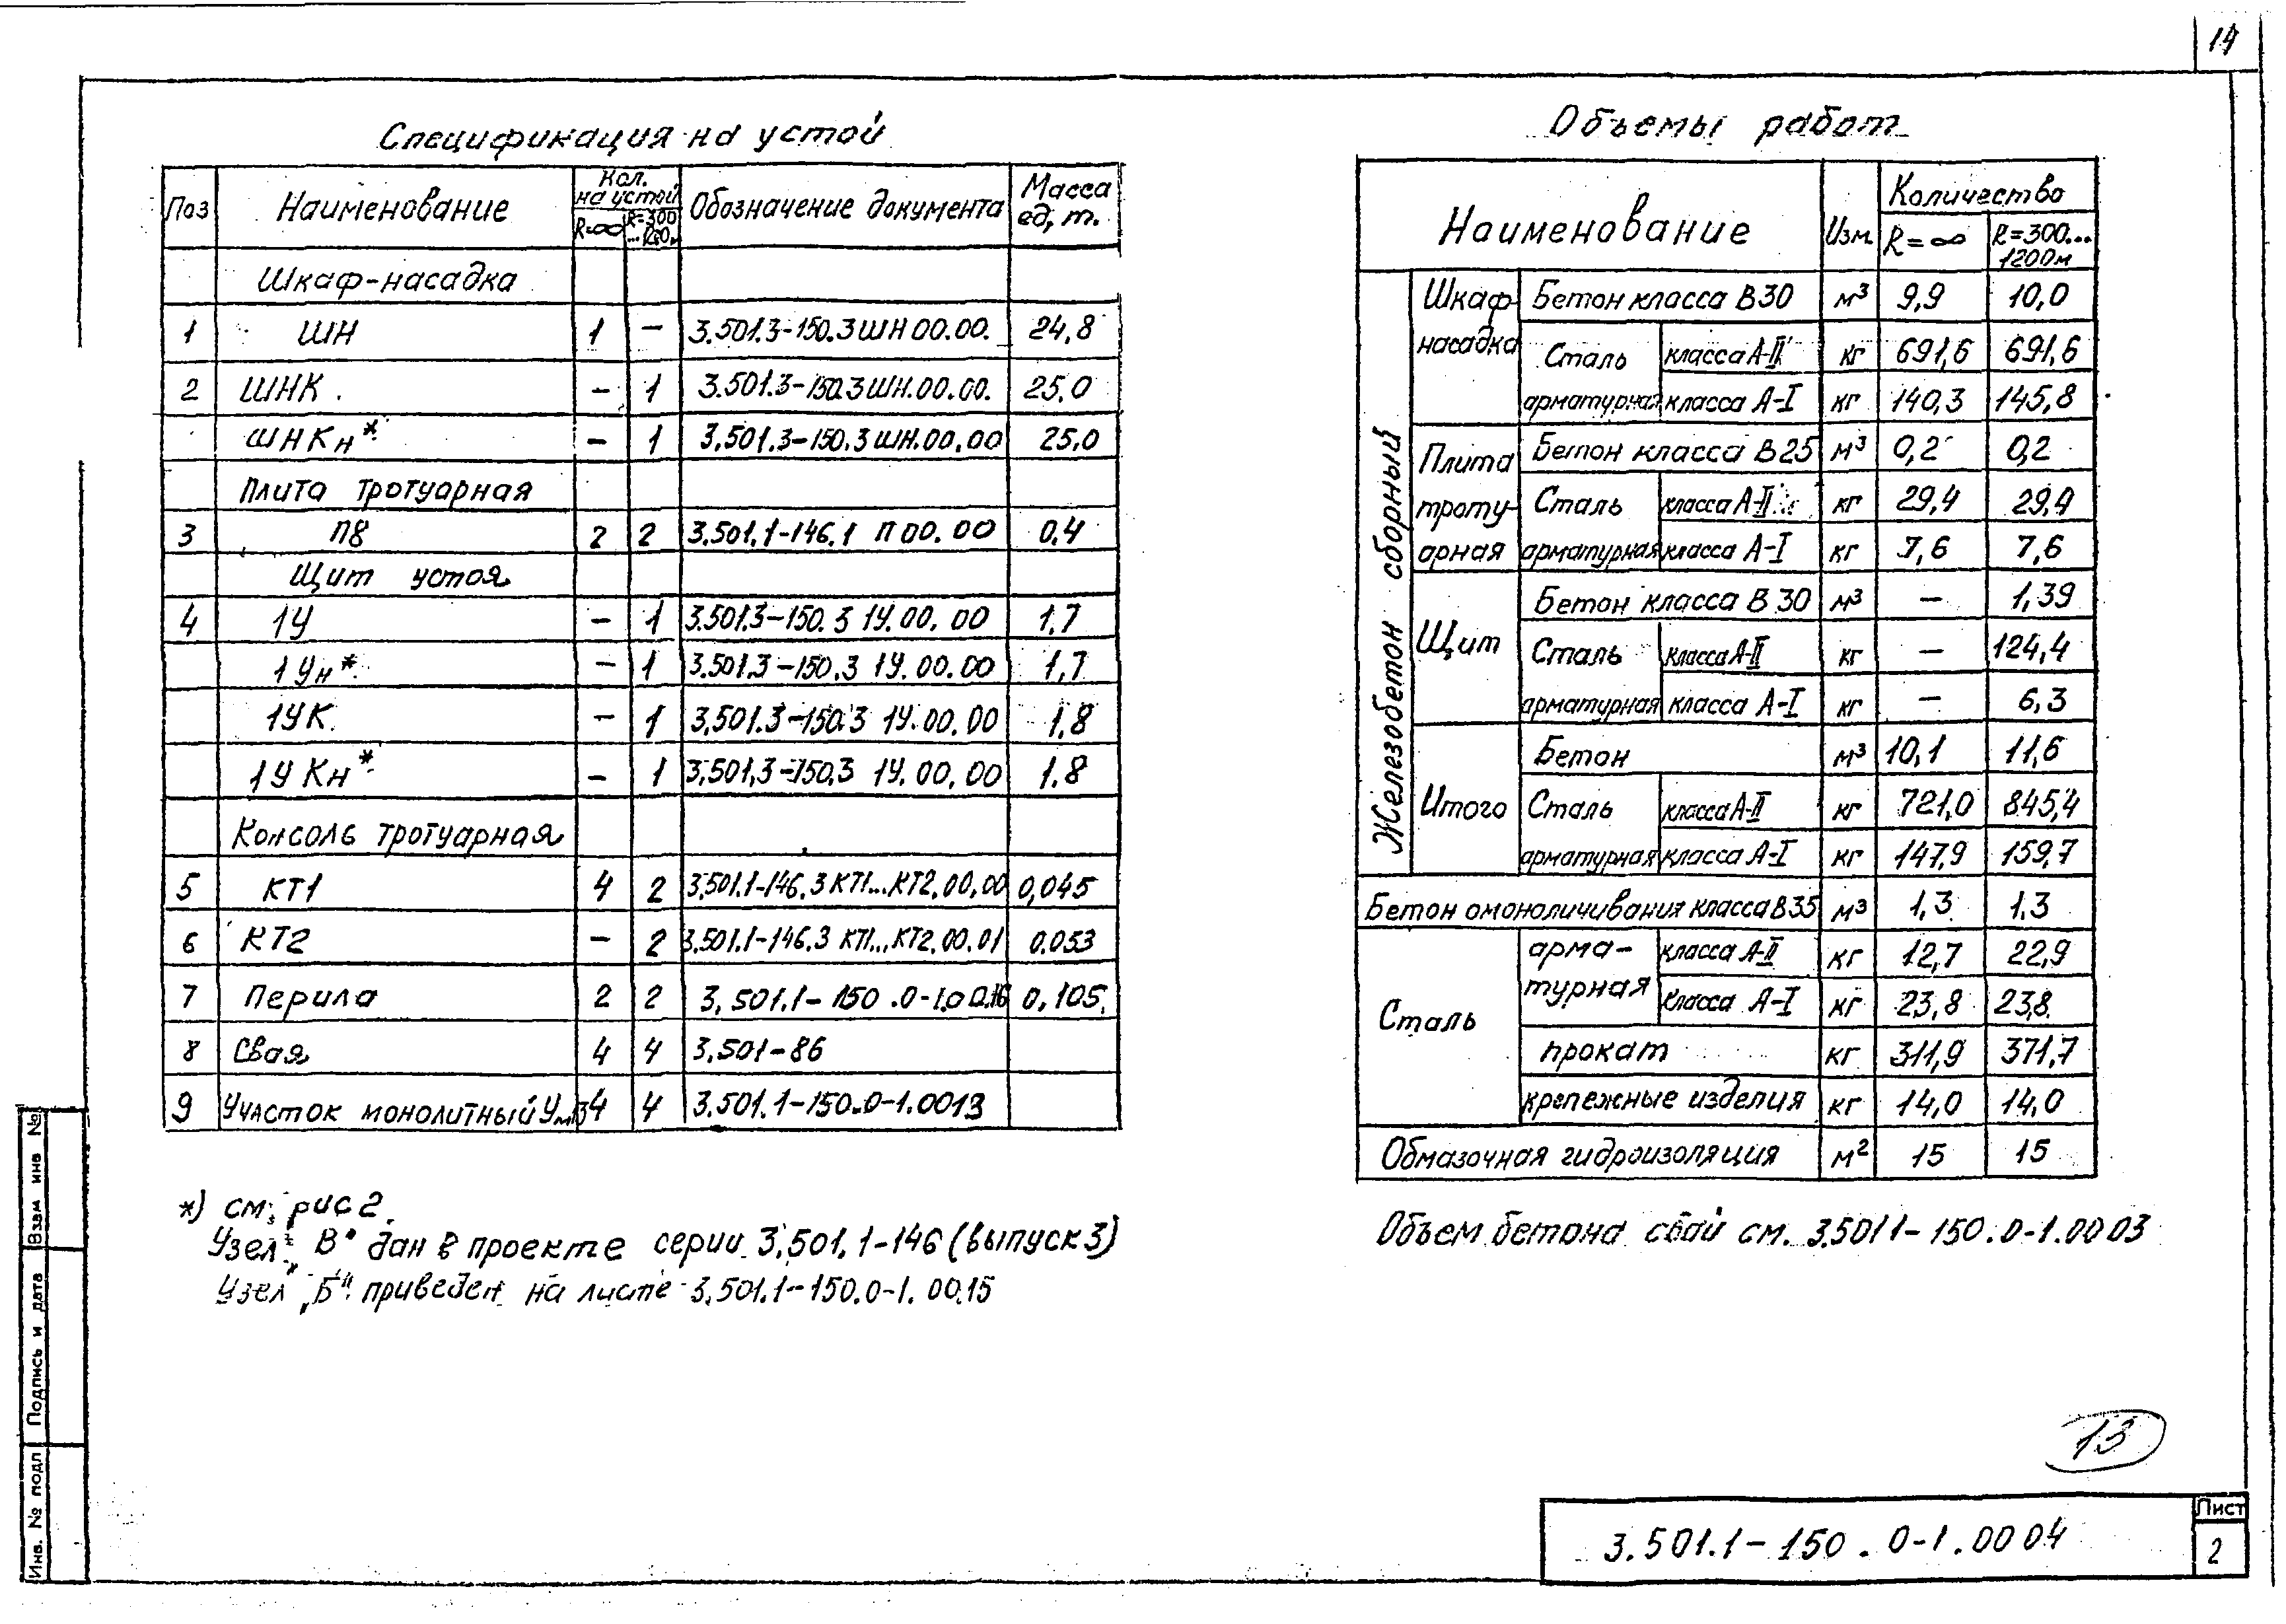 14
Спецификация на устой
Поз Наименование Кол. на устой Обозначение документа Масса ед, т.
R=∞ R=300
Шкаф-насадка
1 ШН 1 – 3.501.3-150.3 ШН 00.00. 24,8
2 ШНК. – 1 3.501.3-150.3 ШН.00.00. 25.0
ШНКн* – 1 3.501.3-150.3 ШН.00.00 25.0
Плита тротуарная
3 П8 2 2 3.501.1-146.1 П 00.00 0.4
Щит устоя
4 1У – 1 3.501.3-150.3 1У.00.00 1.7
1Ун* – 1 3.501.3-150.3 1У.00.00 1,7
1УК – 1 3.501.3-150.3 1У.00.00 1,8
1УКн* – 1 3.501.3-150.3 1У.00.00 1.8
Консоль тротуарная
5 КТ1 4 2 3.501.1-146.3 КТ1...КТ2.00.00 0,045
6 КТ2 – 2 3.501.1-146.3 КТ1...КТ2.00.01 0.053
7 Перила 2 2 3.501.1-150.0-1.0016 0,105
8 Свая 4 4 3.501-86
9 Участок монолитный Ум13 4 4 3.501.1-150.0-1.0013
*) см. рис 2.
Узел „В" дан в проекте серии 3.501.1-146 (выпуск 3)
Узел „Б" приведен на листе 3.501.1-150.0-1.0015
Объемы работ
Наименование Изм. Количество
R=∞ R=300... 1200м
Железобетон сборный
Шкаф насадка Бетон класса В30 м³ 9,9 10,0
Сталь арматурная класса А-II кг 691,6 691,6
класса А-I кг 140,3 145,8
Плита тротуарная Бетон класса В25 м³ 0,2 0,2
Сталь арматурная класса А-II кг 29,4 29,4
класса А-I кг 7,6 7,6
Щит Бетон класса В30 м³ – 1,39
Сталь арматурная класса А-II кг – 124,4
класса А-I кг – 6,3
Итого Бетон м³ 10,1 11,6
Сталь арматурная класса А-II кг 721,0 845,4
класса А-I кг 147,9 159,7
Бетон омоноличивания класса В35 м³ 1,3 1.3
Сталь арма-турная класса А-II кг 12,7 22,9
класса А-I кг 23,8 23,8
прокат кг 311,9 371,7
крепежные изделия кг 14,0 14,0
Обмазочная гидроизоляция м² 15 15
Объем бетона свай см. 3.501.1-150.0-1.0003
13
3.501.1-150.0-1.0004
Лист
2
Инв. № подл Подпись и дата Взам инв №